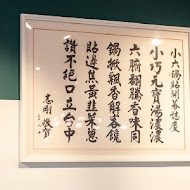 小六鍋貼開幕誌慶
小巧元寶湯漫漫
六腑翻騰香味同
鍋掀飄香解客饞
貼邊焦黃韭菜蔥
讚不絕口立台中
志剛 敬賀